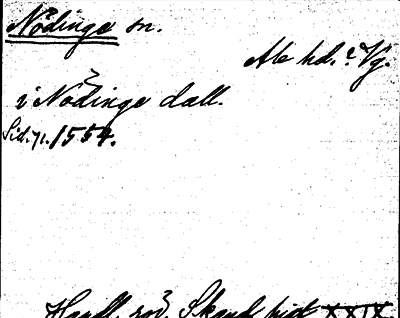 Nödinge sn.
Ale hd. Vg.
i Nödinge dall.
Sid. 71. 1554.
Handl. rör. Skand. hist XXIX